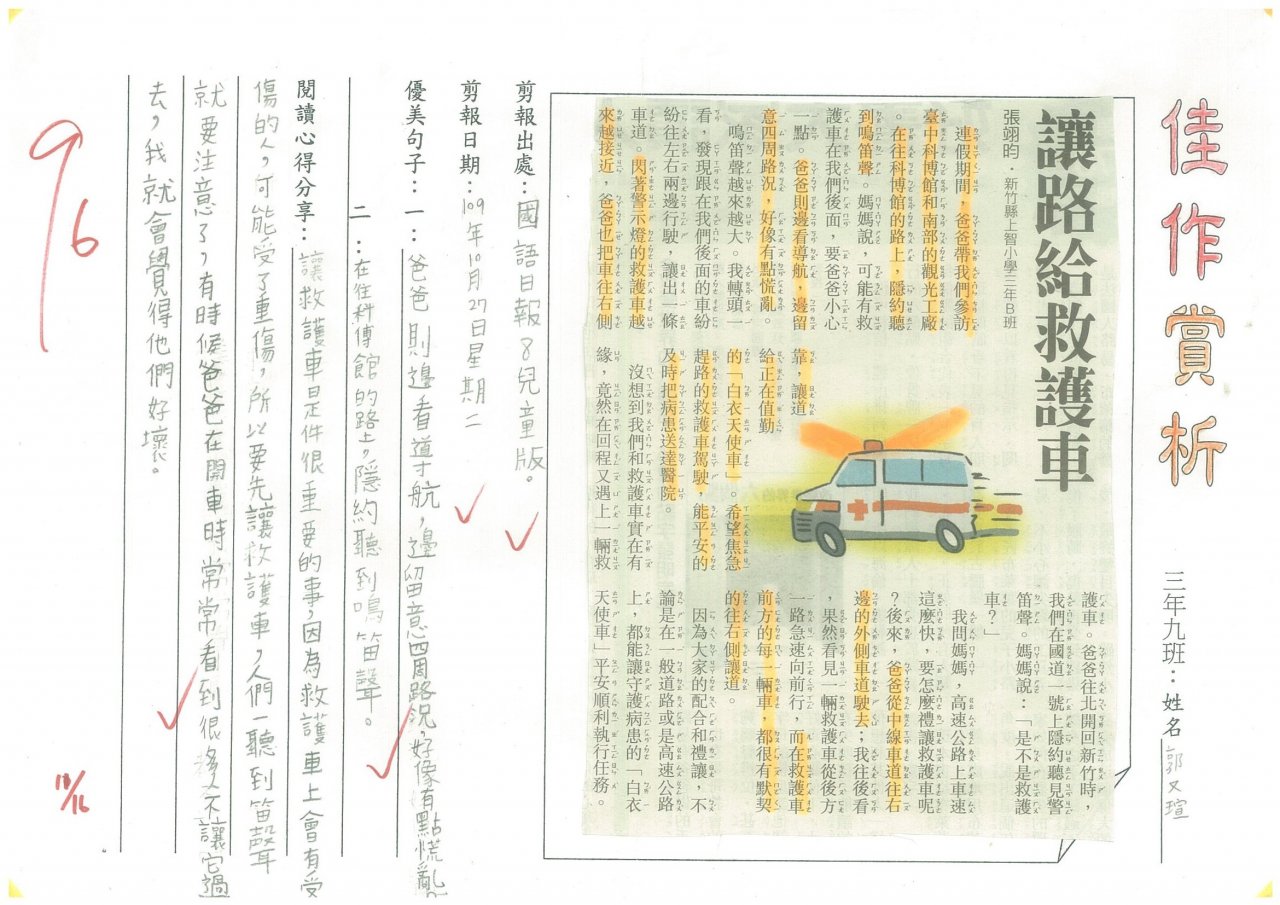 佳作賞析
三年九班：姓名郭又瑄
讓路給救護車
張翊昀．新竹縣上智小學三年B班
連假期間，爸爸帶我們參訪
臺中科博館和南部的觀光工廠
。在往科博館的路上，隱約聽
到鳴笛聲。媽媽說，可能有救
護車在我們後面，要爸爸小心
一點。爸爸則邊看導航，邊留
意四周路況，好像有點慌亂。
鳴笛聲越來越大。我轉頭一
看，發現跟在我們後面的車紛
紛往左右兩邊行駛，讓出一條
車道。閃著警示燈的救護車越
來越接近，爸爸也把車往右側
靠，讓道
給正在值勤
的「白衣天使車」。希望焦急
趕路的救護車駕駛，能平安的
及時把病患送達醫院。
沒想到我們和救護車實在有
緣，竟然在回程又遇上一輛救
護車。爸爸往北開回新竹時，
我們在國道一號上隱約聽見警
笛聲。媽媽說：「是不是救護
車？」
我問媽媽，高速公路上車速
這麼快，要怎麼禮讓救護車呢
？後來，爸爸從中線車道往右
邊的外側車道駛去；我往後看
，果然看見一輛救護車從後方
一路急速向前行，而在救護車
前方的每一輛車，都很有默契
的往右側讓道。
因為大家的配合和禮讓，不
論是在一般道路或是高速公路
上，都能讓守護病患的「白衣
天使車」平安順利執行任務。
剪報出處：國語日報8兒童版。
剪報日期：109年10月27日星期二
優美句子：一：爸爸則邊看導航，邊留意四周路況，好像有點慌亂。
二：在往科博館的路上，隱約聽到鳴笛聲。
閱讀心得分享：讓救護車是件很重要的事，因為救護車上會有受
傷的人，可能受了重傷，所以要先讓救護車，人們一聽到笛聲
就要注意了，有時候爸爸在開車時常常看到很多人不讓它過
去，我就會覺得他們好壞。
96
11/16